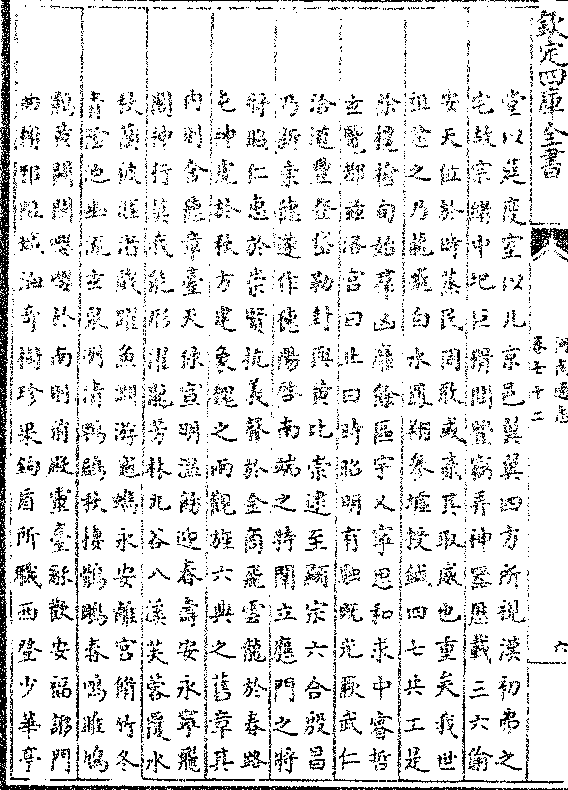 欽定四庫全書
河南通志
卷七十二
六
堂以筵度室以几京邑翼翼四方所視漢初弗之
宅故宗緒中圮巨猾間舋竊弄神器歷載三六偷
安天位於時蒸民罔敢或貳其取威也重矣我世
祖忿之乃龍飛白水鳳翔參墟授鉞四七共工是
除欃槍旬始羣凶靡餘區宇乂寧思和求中睿哲
玄覽都兹洛宫曰止曰時昭明有融既光厥武仁
洽道豐登岱勒封與黄比崇逮至顯宗六合殷昌
乃新崇德遂作德陽啓南端之特闈立應門之將
將昭仁惠於崇賢抗義聲於金商飛雲龍於春路
屯神虎於秋方建象魏之兩觀旌六典之舊章其
内則含德章臺天禄宣明温飭迎春壽安永寧飛
閣神行莫我能形濯龍芳林九谷八溪芙蓉覆水
秋蘭被涯渚戲躍魚淵游龜蠵永安離宫脩竹冬
青陰池幽流玄泉洌清鵯鶋秋棲鶻鵃春鳴雎鳩
麗黄關關嚶嚶於南則前殿靈臺龢歡安福謻門
曲榭邪阻城洫奇樹珍果鉤盾所職西登少華亭